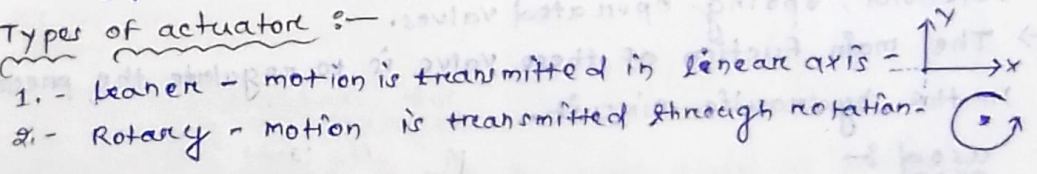 Types of actuator :-
1. - Leaner - motion is transmitted in linear axis - Y X
2. - Rotary - motion is transmitted through rotation -